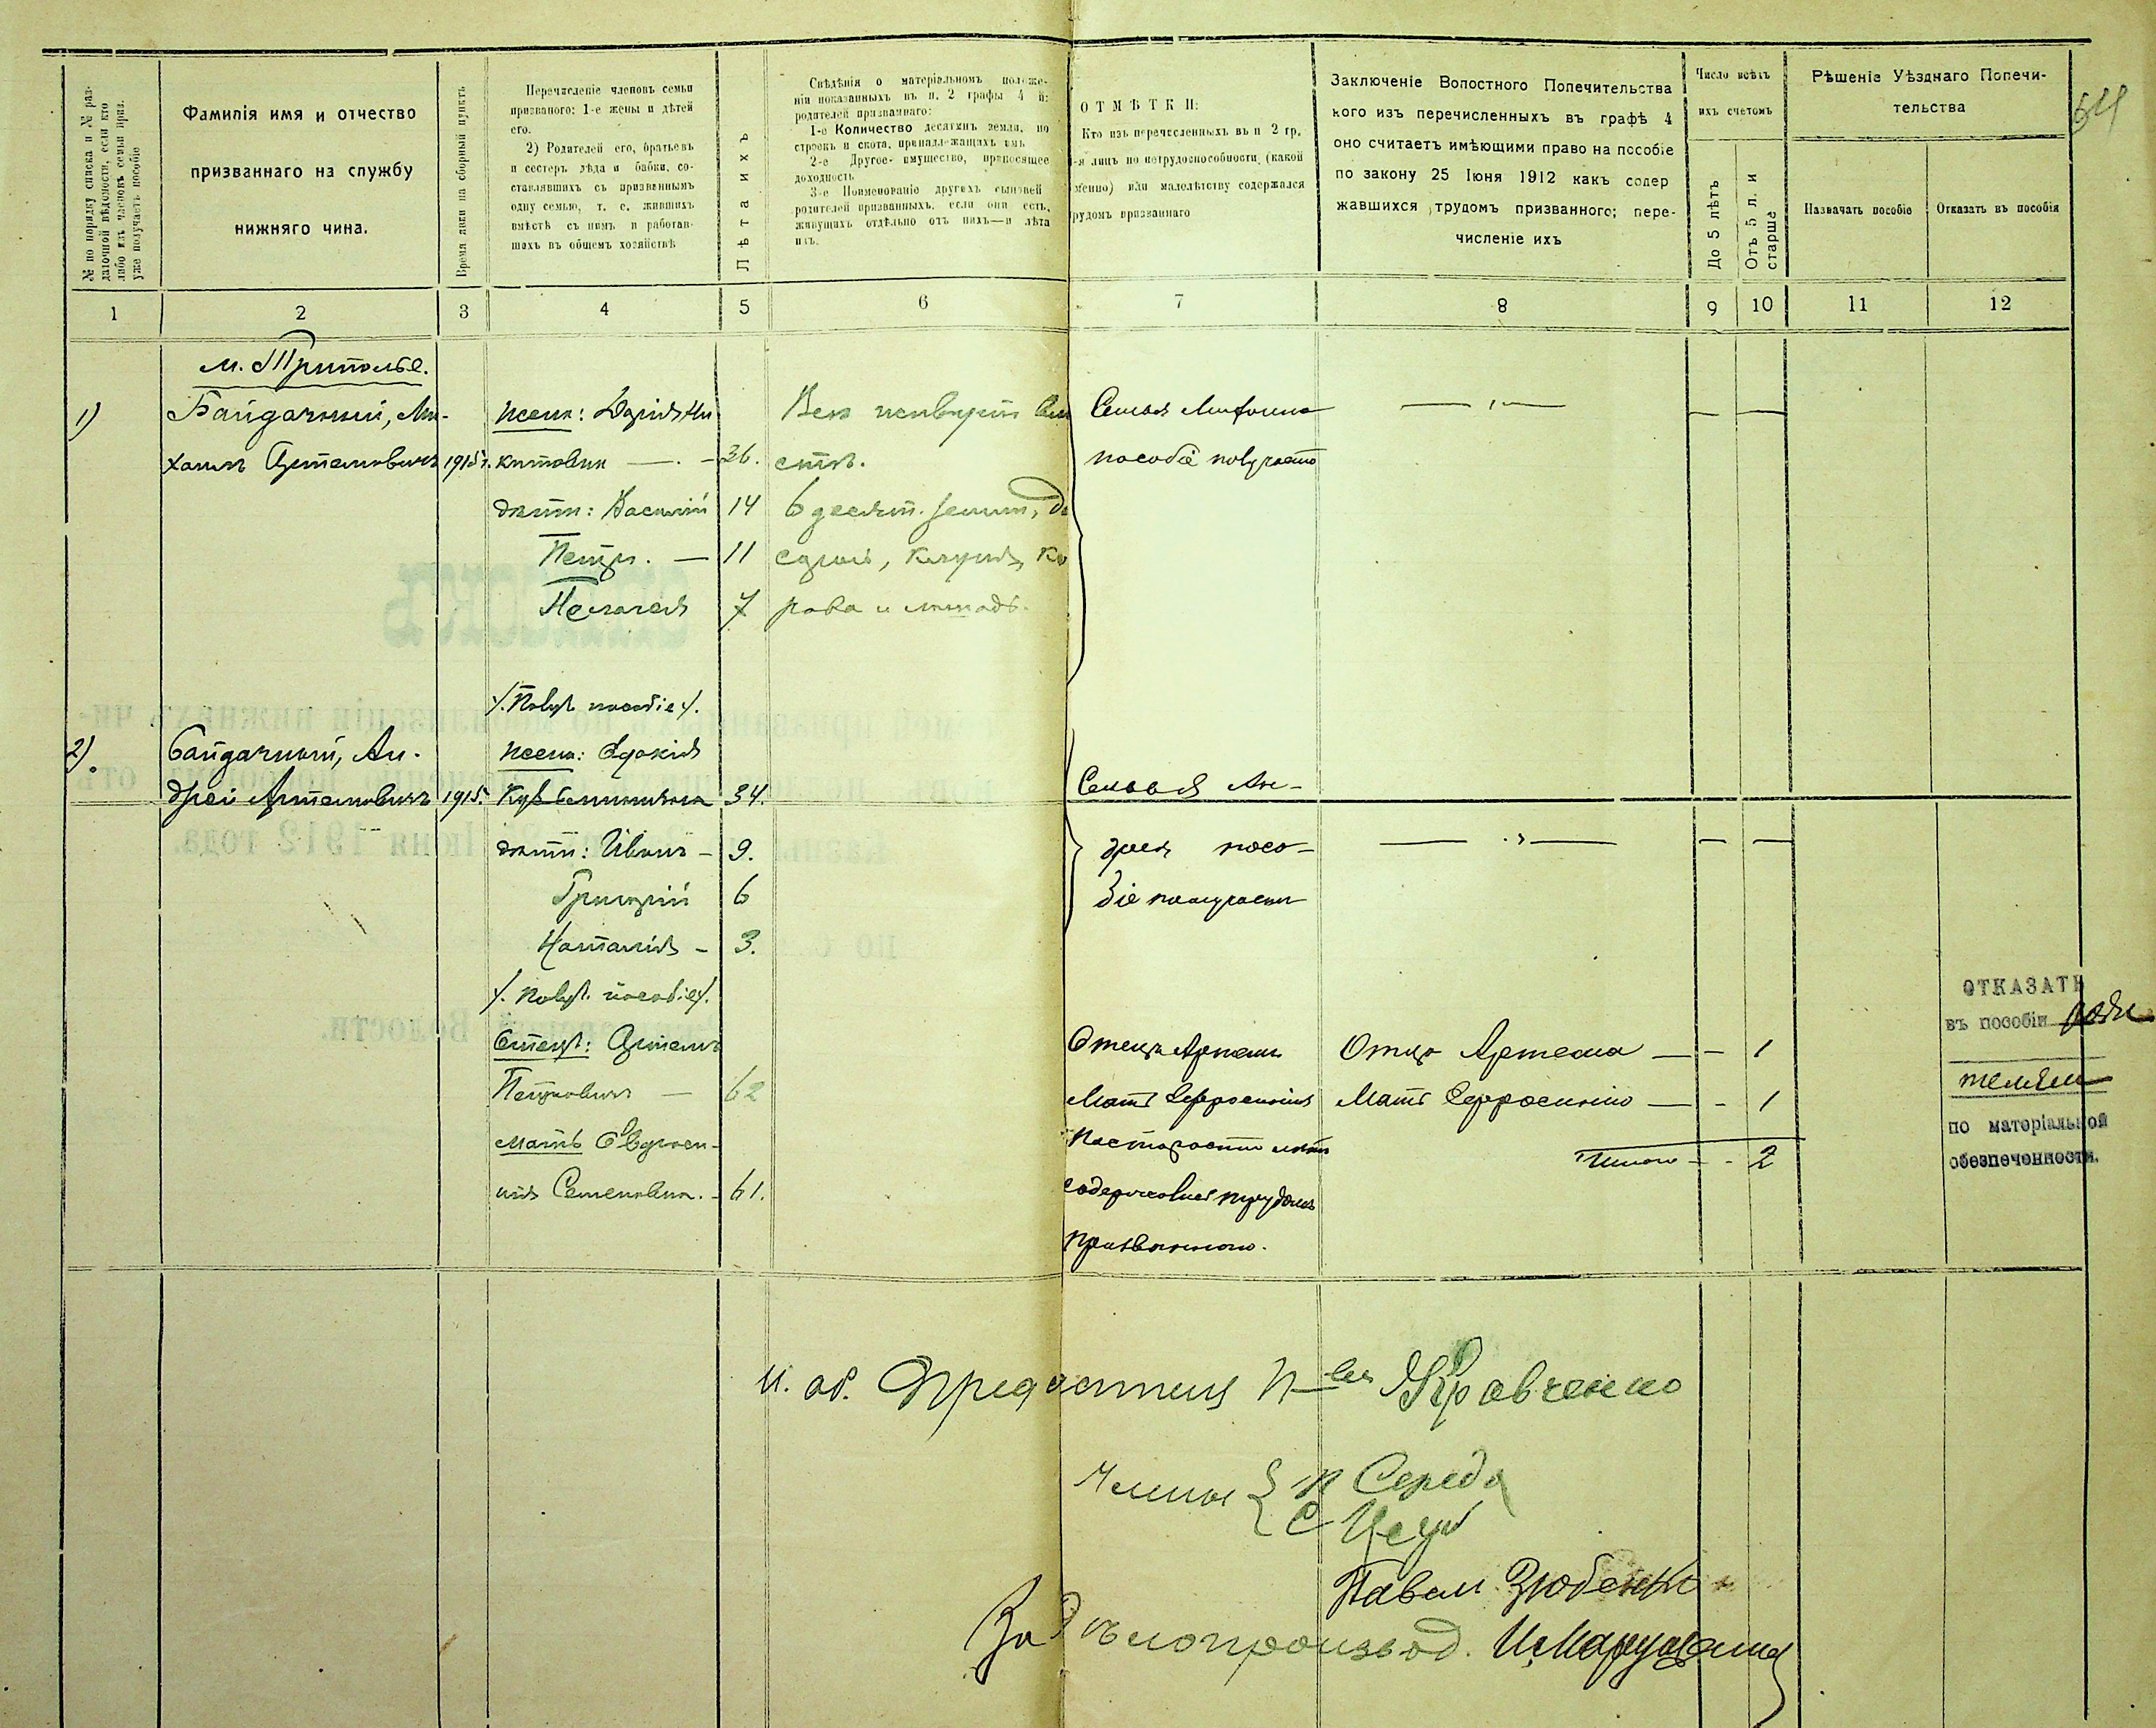 64
№ по порядку списка и № раз-
даточной вѣдомости, если кто
либо изъ членовъ семьи приз.
уже получаетъ пособіе
Фамилія имя и отчество
призваннаго на службу
нижняго чина.
Время явки на сборный пунктъ
Перечисленіе членовъ семьи
призваного: 1-е жены и дѣтей
его.
2) Родителей его, братьевъ
и сестеръ дѣда и бабки, со-
ставлявшихъ съ призваннымъ
одну семью, т. е. жившихъ
вмѣстѣ съ нимъ и работав-
шихъ въ общемъ хозяйствѣ
Лѣта ихъ
Свѣдѣнія о матеріальномъ положе-
ніи показанныхъ въ п. 2 графы 4 и:
родителей призваннаго:
1-е Количество десятинъ земли, по
строекъ и скота, принадлежащихъ имъ
2-е Другое имущество, приносящее
доходность
3-е Поименованіе другихъ сыновей
родителей призванныхъ, если они есть,
живущихъ отдѣльно отъ нихъ—и лѣта
ихъ.
ОТМѢТКИ:
Кто изъ перечисленныхъ въ п 2 гр.
-я лицъ по нетрудоспособности (какой
менно) или малолѣтству содержался
рудомъ призваннаго
Заключеніе Волостного Попечительства
кого изъ перечисленныхъ въ графѣ 4
оно считаетъ имѣющими право на пособіе
по закону 25 Іюня 1912 какъ содер
жавшихся трудомъ призванного; пере-
численіе ихъ
Число всѣхъ
ихъ счетомъ
До 5 лѣтъ
Отъ 5 л. и
старше
Рѣшеніе Уѣзднаго Попечи-
тельства
Назначать пособіе
Отказать въ пособіи
1 2 3 4 5 6 7 8 9 10 11 12
м. Триполье.
1) Байдачный, Ми-
хаилъ Артемовичъ 1915 г.
жена: Дарія Ни
китовна — 36.
дѣти: Василій 14
Петръ. — 11
Пелагея 7
ств.
6 десят. земли, до
рова и лошадь.
Семья
пособіе получаетъ
/. Получ. пособіе /.
2). Байдачный, Ан-
дрей Артемовичъ 1915.
жена: Евдокія
34.
дѣти: Иванъ — 9.
Григорій 6
Наталія — 3.
/. Получ. пособіе /.
Семья Ан-
дрея посо-
біе получаетъ
Отецъ: Артемъ
Петровичъ — 62
мать Ефроси-
нія Семеновна. — 61.
Отецъ Артемъ
Мать Ефросинія
по старости лѣтъ
содержались трудомъ
призванного.
Отца Артема — - 1
Мать Ефросинію — - 1
Итого - - 2
ОТКАЗАТЬ
въ пособіи роди
телямъ
по матеріальной
обезпеченности.
И. об. Предсѣдателя П-ва Кравченко
Члены { П Середа
Павелъ Зюбенко
За дѣлопроизвод.